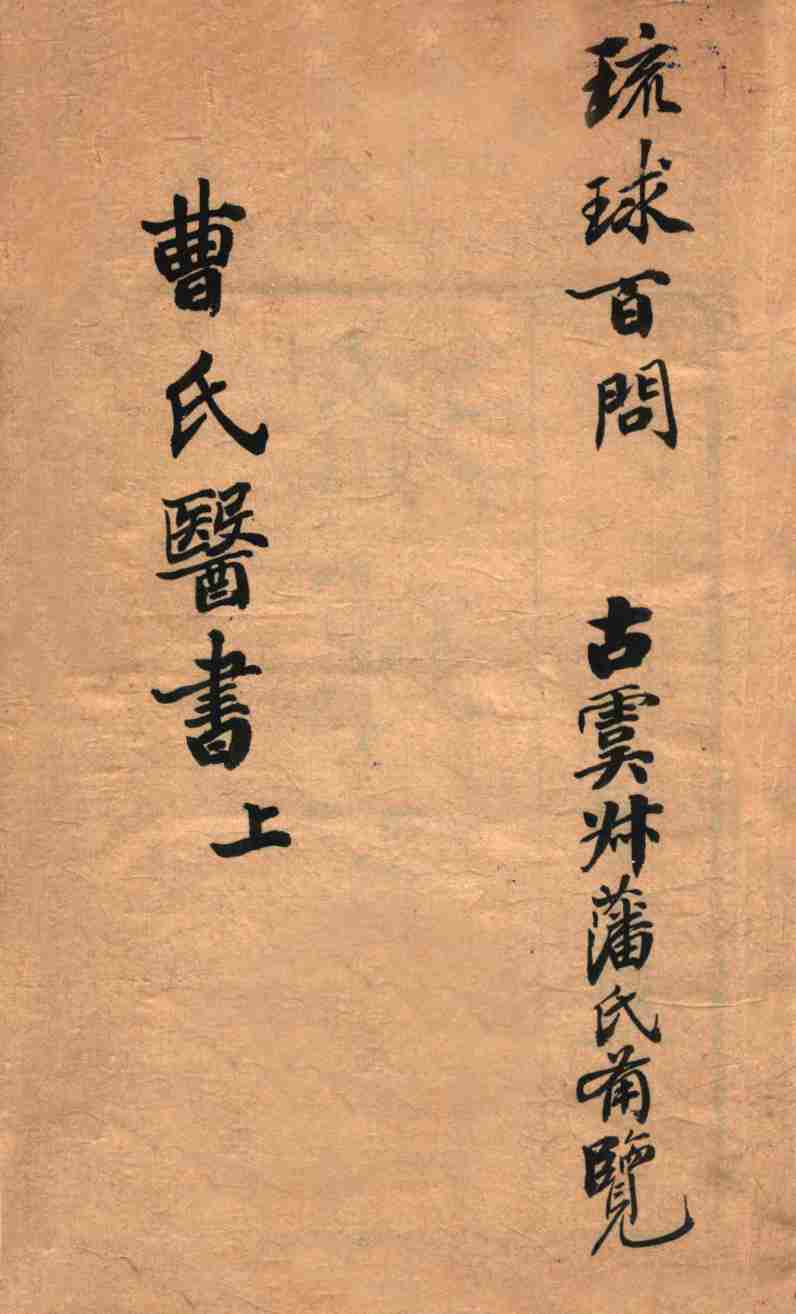 琉球百問 古虞艸藩氏備覽
曹氏醫書上